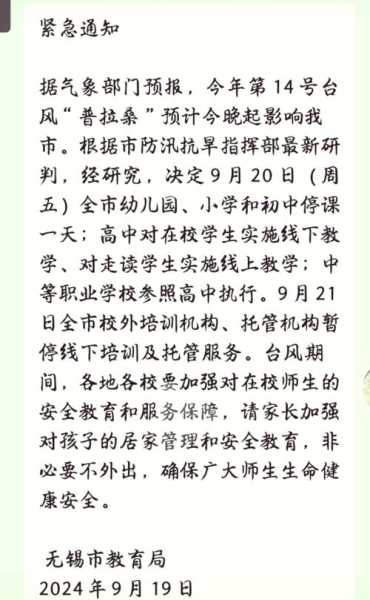 紧急通知
据气象部门预报，今年第14号台
风“普拉桑”预计今晚起影响我
市。根据市防汛抗旱指挥部最新研
判，经研究，决定9月20日（周
五）全市幼儿园、小学和初中停课
一天；高中对在校学生实施线下教
学、对走读学生实施线上教学；中
等职业学校参照高中执行。9月21
日全市校外培训机构、托管机构暂
停线下培训及托管服务。台风期
间，各地各校要加强对在校师生的
安全教育和服务保障，请家长加强
对孩子的居家管理和安全教育，非
必要不外出，确保广大师生生命健
康安全。
无锡市教育局
2024年9月19日